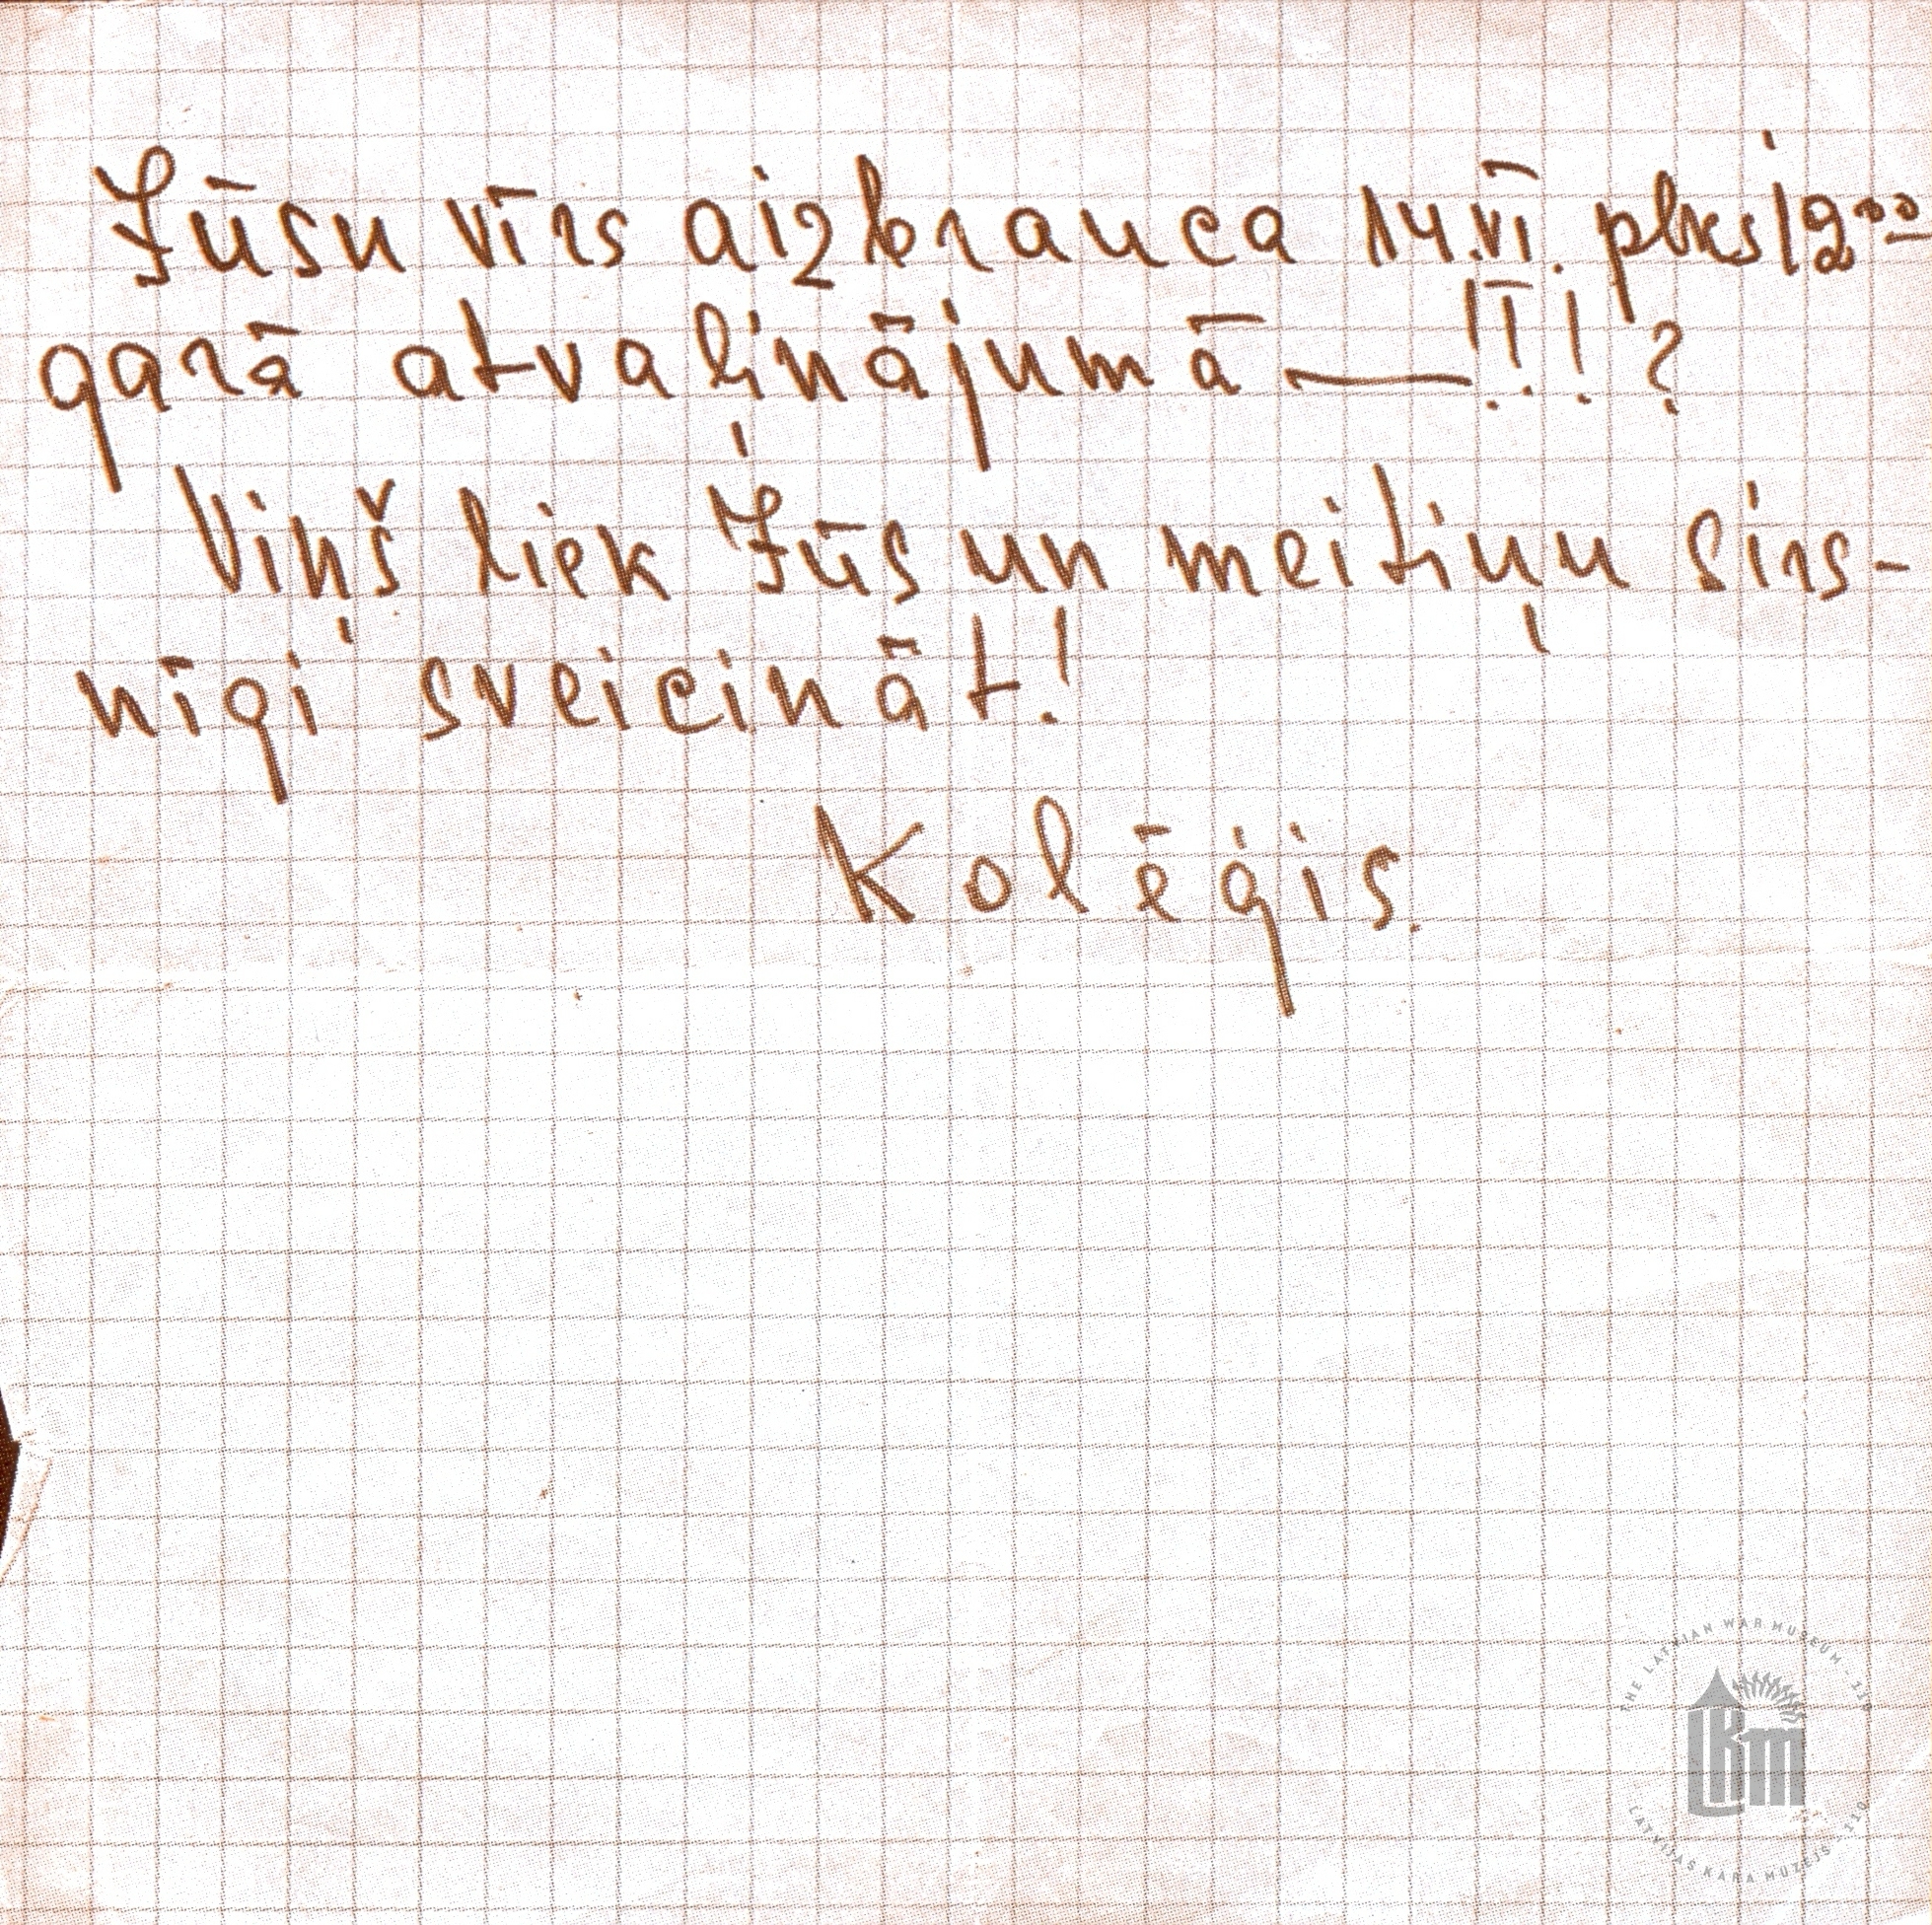 Jūsu vīrs aizbrauca 14.VI. plkst 12⁰⁰
garā atvaļinājumā — !!! ?
Viņš liek Jūs un meitiņu sirs-
nīgi sveicināt!
Kolēģis.
THE LATVIAN WAR MUSEUM - 110
LKM
LATVIJAS KARA MUZEJS - 110